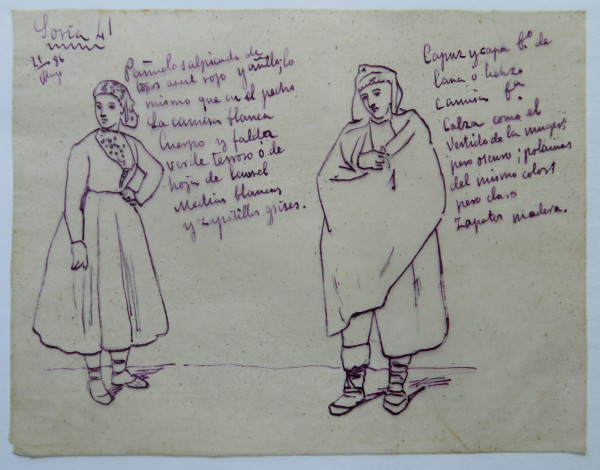 Soria 41
21/96
Mayo
Pañuelo salpicado de
topos azul rojo y amllo, lo
mismo que en el pecho
La camisa blanca
Cuerpo y falda
verde terroso ó de
hoja de laurel
Medias blancas
y zapatillas grises.
Capuz y capa bº de
lana ó lienzo
Camisa
Calza como el
vestido de la mujer,
pero oscuro; polainas
del mismo color
pero claro
Zapatos madera.